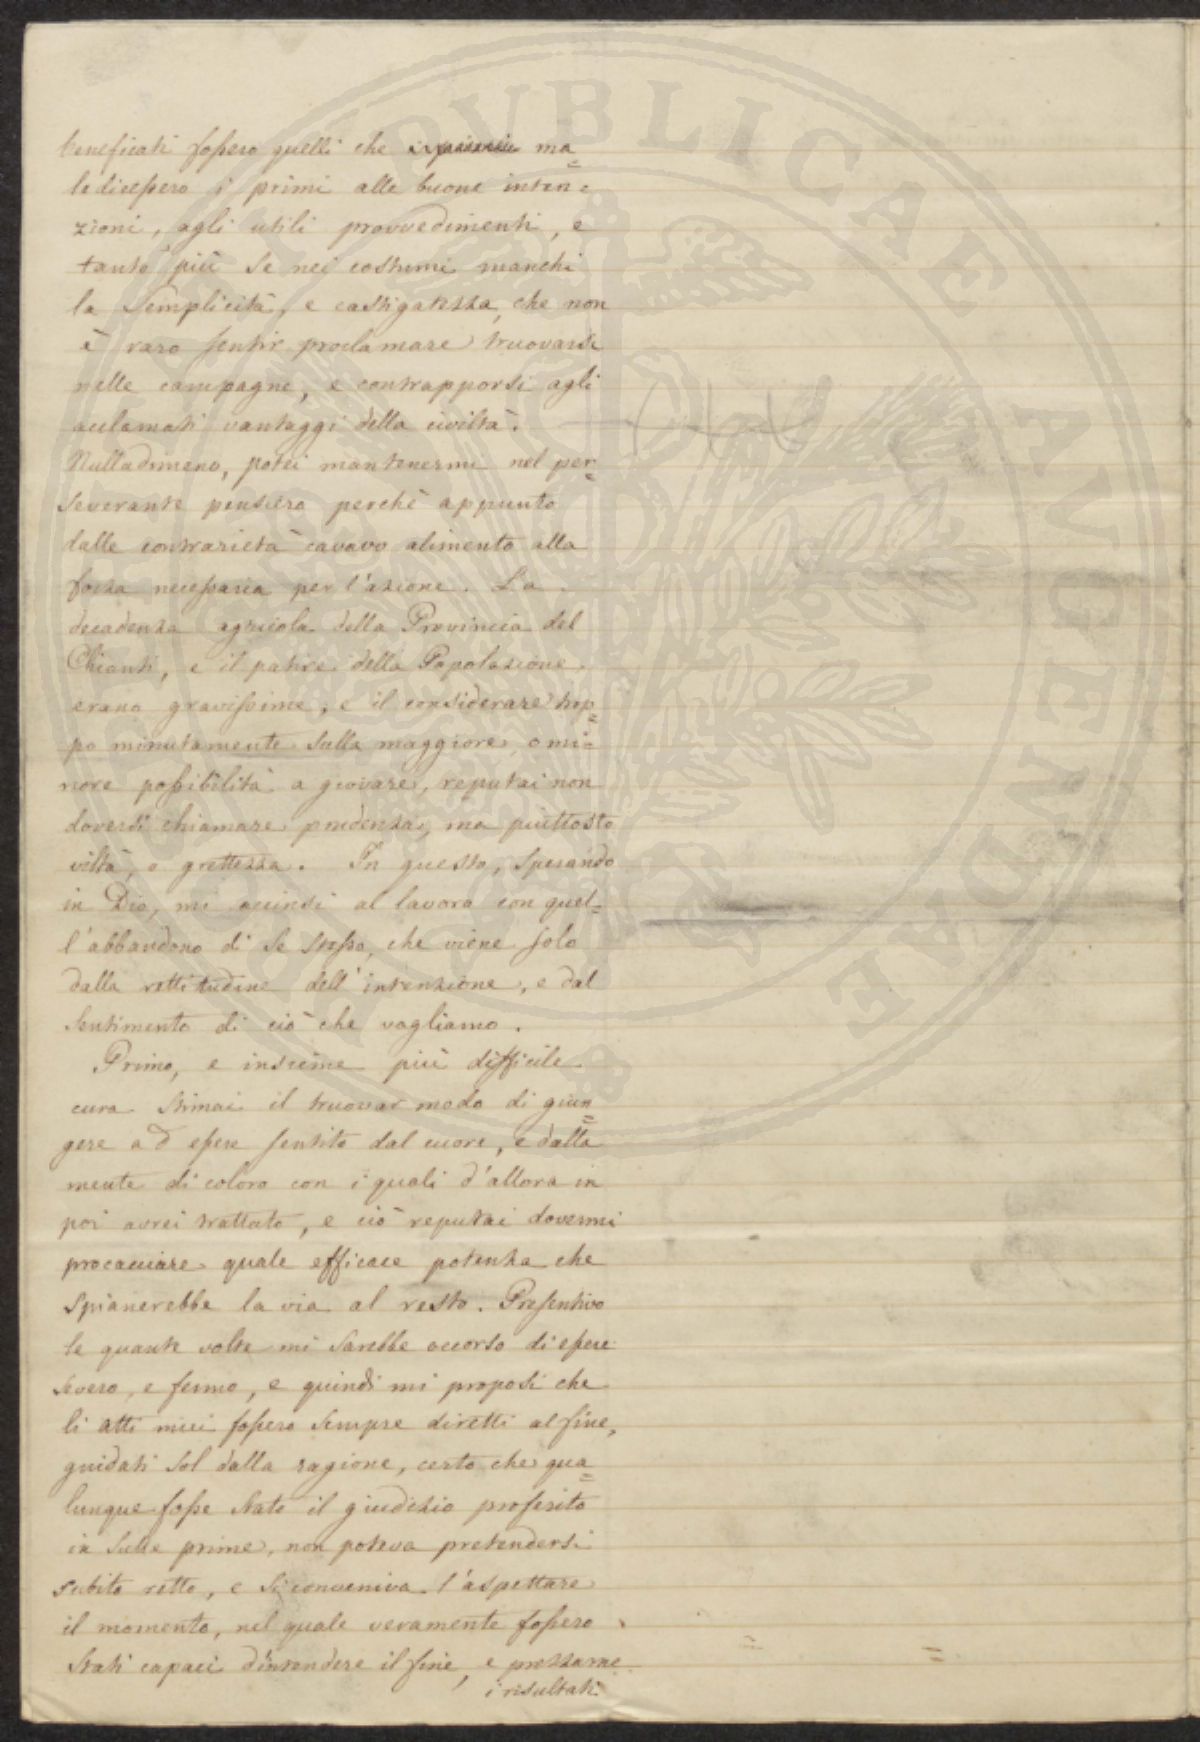 beneficati fossero quelli che ma=
ledicessero i primi alle buone inten=
zioni, agli utili provvedimenti, e
tanto più se nei costumi manchi
la semplicità, e castigatezza, che non
è raro sentir proclamare truovarsi
nelle campagne, e contrapporsi agli
acclamati vantaggi della civiltà.
Nulladimeno, potei mantenermi nel per=
severante pensiero perchè appunto
dalle contrarietà cavavo alimento alla
forza necessaria per l'azione. La
decadenza agricola della Provincia del
Chianti, e il patire della Popolazione
erano gravissime, e il considerare trop=
po minutamente sulla maggiore, o mi=
nore possibilità a giovare, reputai non
doversi chiamare prudenza, ma piuttosto
viltà, o grettezza. In questo, sperando
in Dio, mi accinsi al lavoro con quel=
l'abbandono di se stesso, che viene solo
dalla rettitudine dell'intenzione, e dal
sentimento di ciò che vogliamo.
Primo, e insieme più difficile
cura stimai il truovar modo di giun=
gere ad essere sentito dal cuore, e dalla
mente di coloro con i quali d'allora in
poi avrei trattato, e ciò reputai dovermi
procacciare quale efficace potenza che
spianerebbe la via al resto. Presentivo
le quante volte mi sarebbe occorso di essere
severo, e fermo, e quindi mi proposi che
li atti miei fossero sempre diretti al fine,
guidati sol dalla ragione, certo che qua=
lunque fosse stato il giudizio proferito
in sulle prime, non poteva pretendersi
subito retto, e si conveniva l'aspettare
il momento, nel quale veramente fossero
stati capaci d'intendere il fine, e prezzarne
i resultati
PUBLICAE AUGENDAE